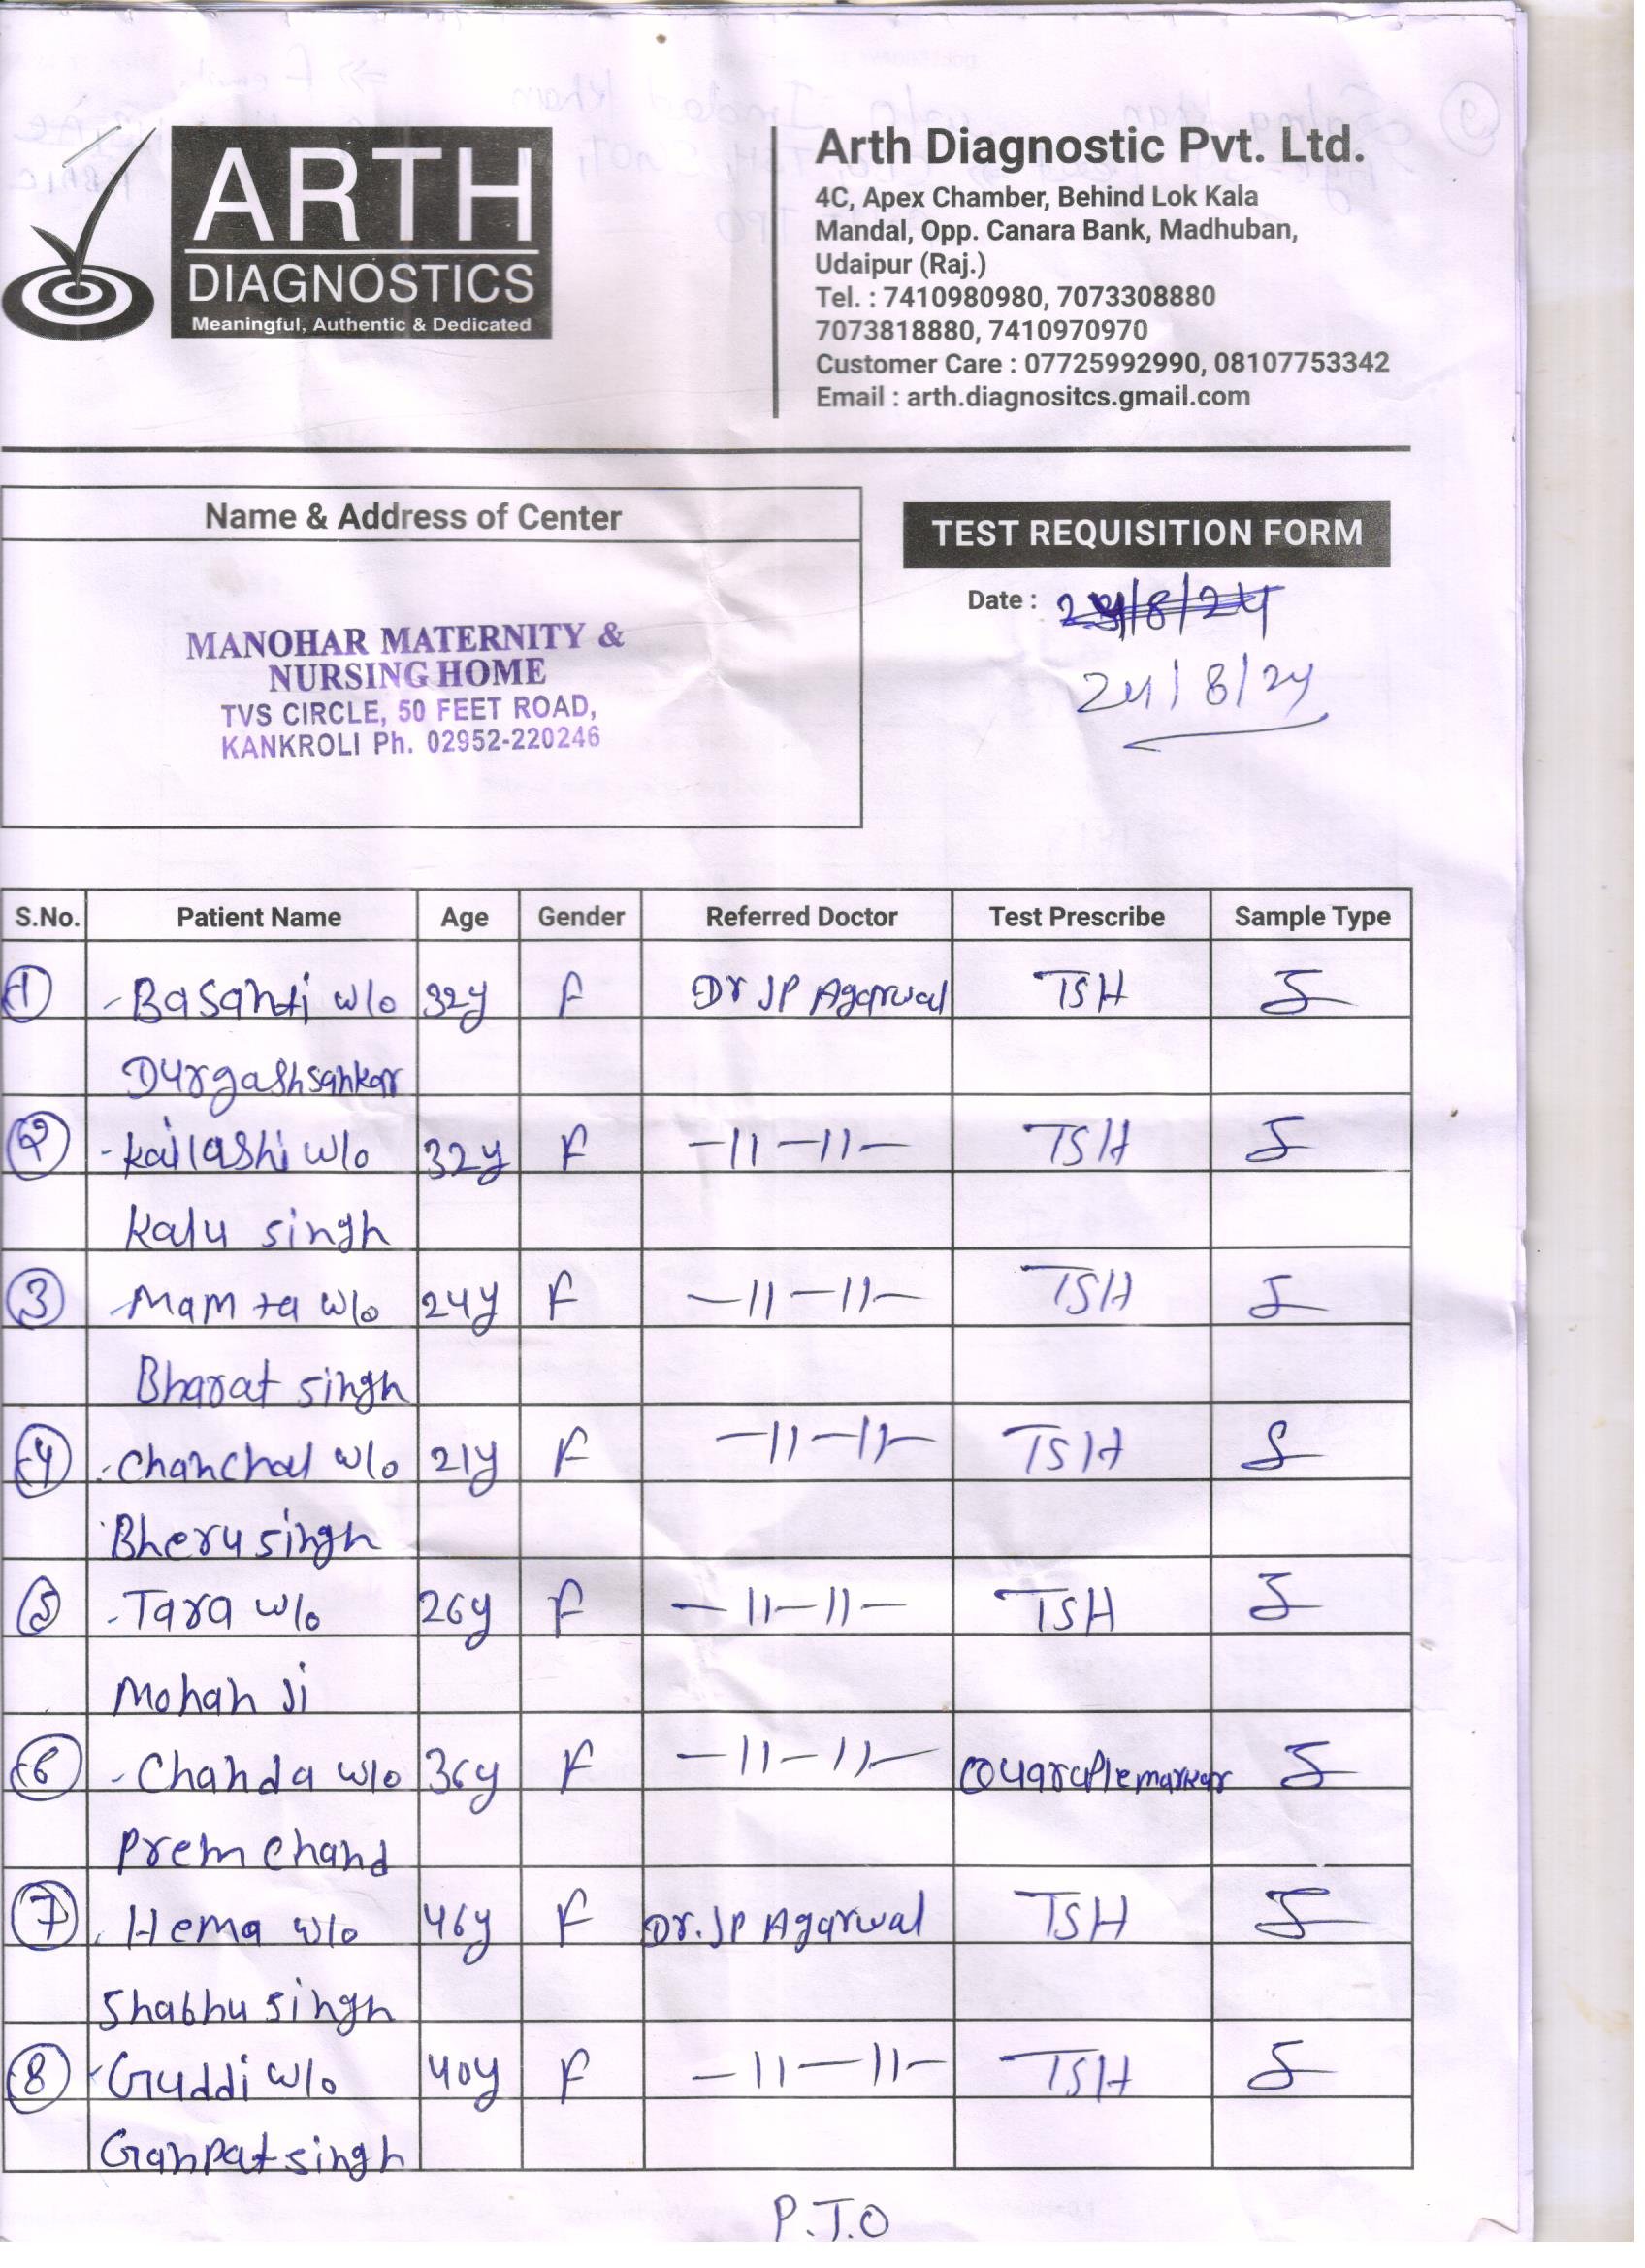 ARTH
DIAGNOSTICS
Meaningful, Authentic & Dedicated
Arth Diagnostic Pvt. Ltd.
4C, Apex Chamber, Behind Lok Kala
Mandal, Opp. Canara Bank, Madhuban,
Udaipur (Raj.)
Tel. : 7410980980, 7073308880
7073818880, 7410970970
Customer Care : 07725992990, 08107753342
Email : arth.diagnositcs.gmail.com
Name & Address of Center
MANOHAR MATERNITY &
NURSING HOME
TVS CIRCLE, 50 FEET ROAD,
KANKROLI Ph. 02952-220246
TEST REQUISITION FORM
Date :
24/8/24
S.No. Patient Name Age Gender Referred Doctor Test Prescribe Sample Type
1 - Basanti w/o 32y F Dr JP Agarwal TSH S
Durgashsankar
2 - Kailashi w/o 32y F -11-11- TSH S
Kalu singh
3 - Mamta w/o 24y F -11-11- TSH S
Bharat singh
4 - Chanchal w/o 21y F -11-11- TSH S
Bheru singh
5 - Tara w/o 26y F -11-11- TSH S
Mohan Ji
6 - Chanda w/o 36y F -11-11- S
Prem chand
7 Hema w/o 46y F Dr. JP Agarwal TSH S
Shabhu singh
8 - Guddi w/o 40y F -11-11- TSH S
Ganpat singh
P.T.O